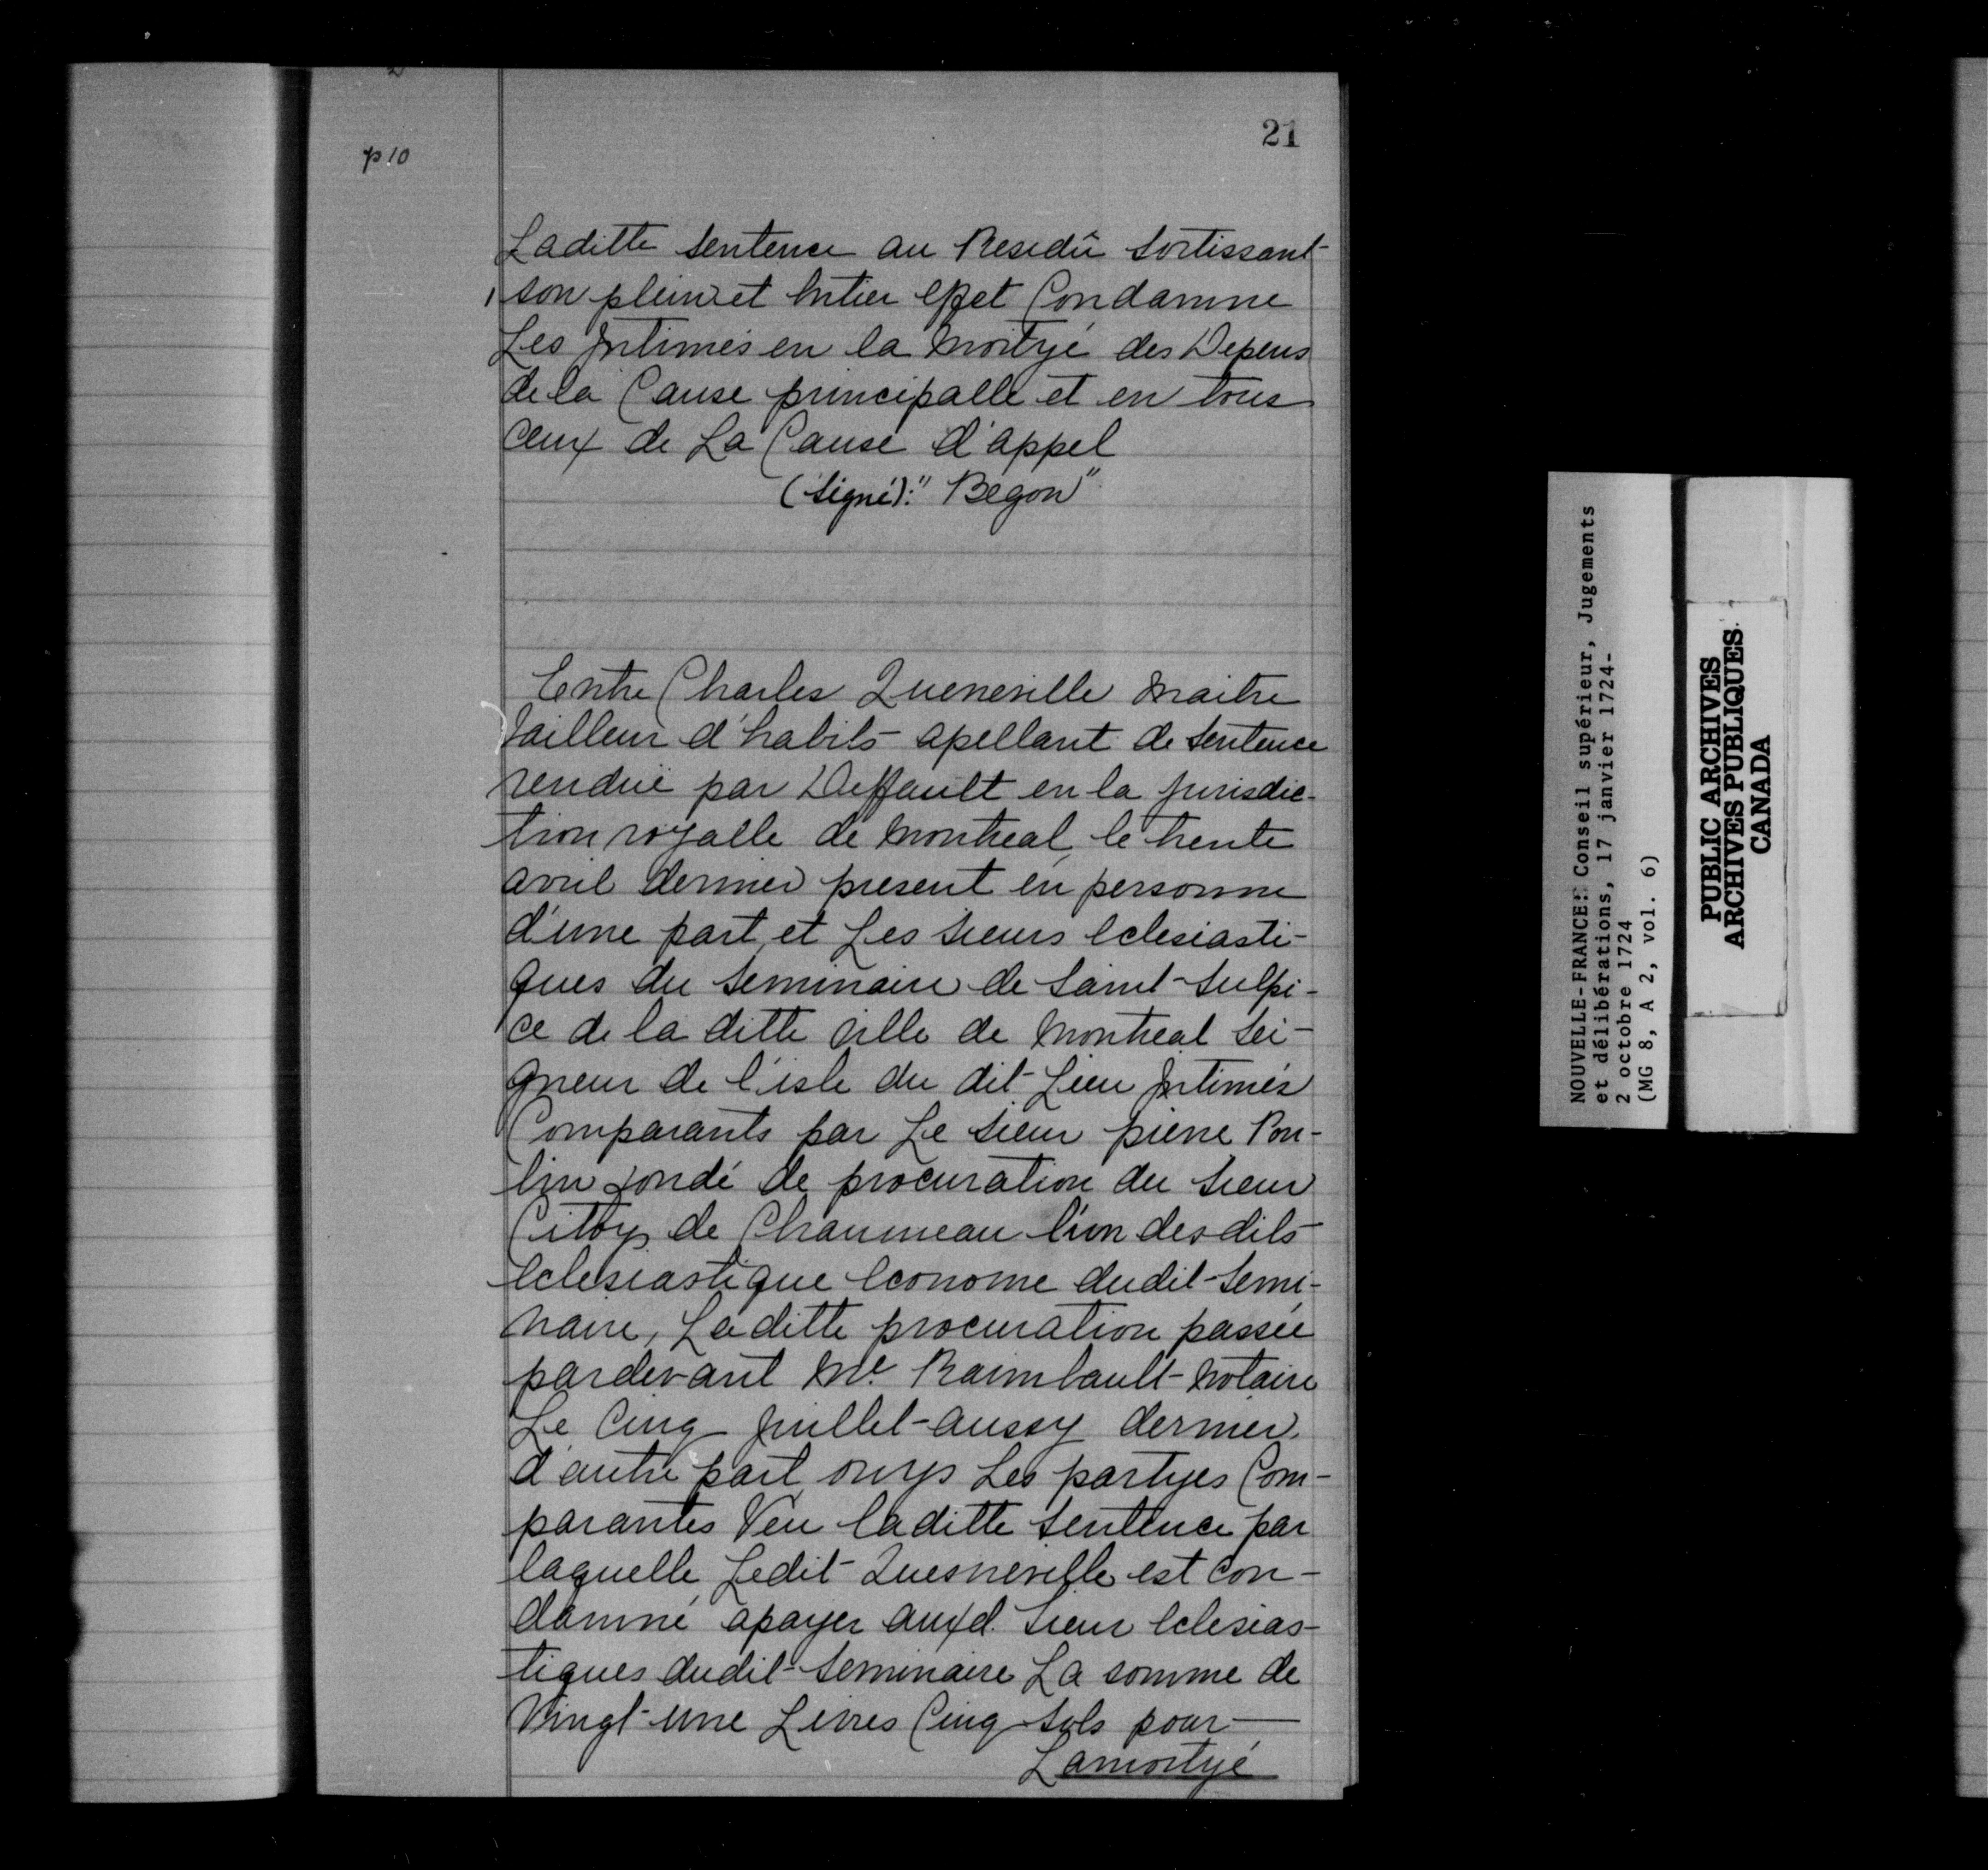 21
p 10
Laditte sentence au Residû sortissant
son plein et Entier effet Condamne
Les Intimés en la moityé des Depens
de la Cause principalle et en tous
ceux de La Cause d'appel
(Signé): "Begon"
Entre Charles Queneville maitre
Tailleur d'habits apellant de sentence
rendüe par Deffault en la Jurisdic-
tion royalle de montreal le trente
avril dernier present en personne
d'une part, et Les sieurs Eclesiasti-
ques du seminaire de saint-sulpi-
ce de la ditte ville de montreal sei-
gneur de l'isle du dit Lieu Intimés
Comparants par Le sieur pierre Pou-
lin fondé de procuration du sieur
Citoys de Chaumeau l'un des dits
Eclesiastique Econome dudit semi-
naire, Laditte procuration passée
pardevant Me. Raimbault notaire
Le Cinq Juillet aussy dernier
d'autre part, ouys Les partyes Com-
parantes Veu laditte sentence par
laquelle Ledit Quesneville est con-
damné apayer auxd. sieur Eclesias-
tiques dudit seminaire La somme de
Vingt une Livres Cinq sols pour
Lamoityé
NOUVELLE-FRANCE: Conseil supérieur, Jugements
et délibérations, 17 janvier 1724-
2 octobre 1724
(MG 8, A 2, vol. 6)
PUBLIC ARCHIVES
ARCHIVES PUBLIQUES
CANADA